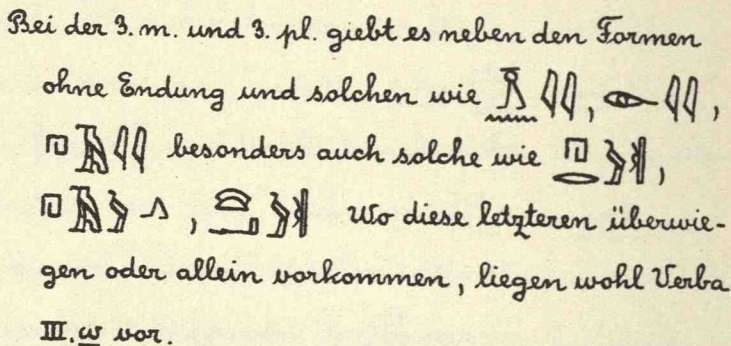 Bei der 3. m. und 3. pl. giebt es neben den Formen
ohne Endung und solchen wie 𓈖𓇋𓇋, 𓁹𓇋𓇋,
𓉔𓄿𓇋𓇋 besonders auch solche wie 𓉔𓂋𓅱,
𓉔𓄿𓅱𓂻, 𓈍𓂝𓅱 Wo diese letzteren überwie-
gen oder allein vorkommen, liegen wohl Verba
III. w vor.